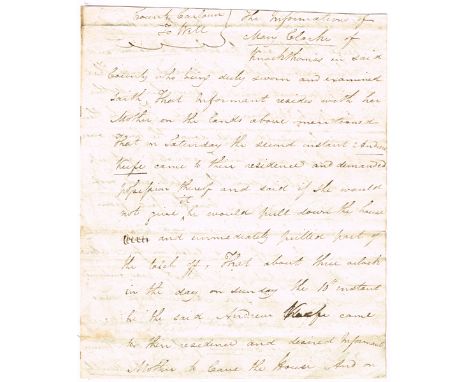 County Carlow } The Informations of
To Wit } Mary Clarke of
Knockthomas in said
County who being duly sworn and examined
saith, That Informant resides with her
Mother on the lands above mentioned
That on Saturday the second instant Andrew
Keefe came to their residence and demanded
possession thereof and said if she would
not give it he would pull down the house
and immediately pulled part of
the roof off. That about three oclock
in the day on sunday the 10th instant
he the said Andrew Keefe came
to their residence and desired Informants
Mother to leave the House And on